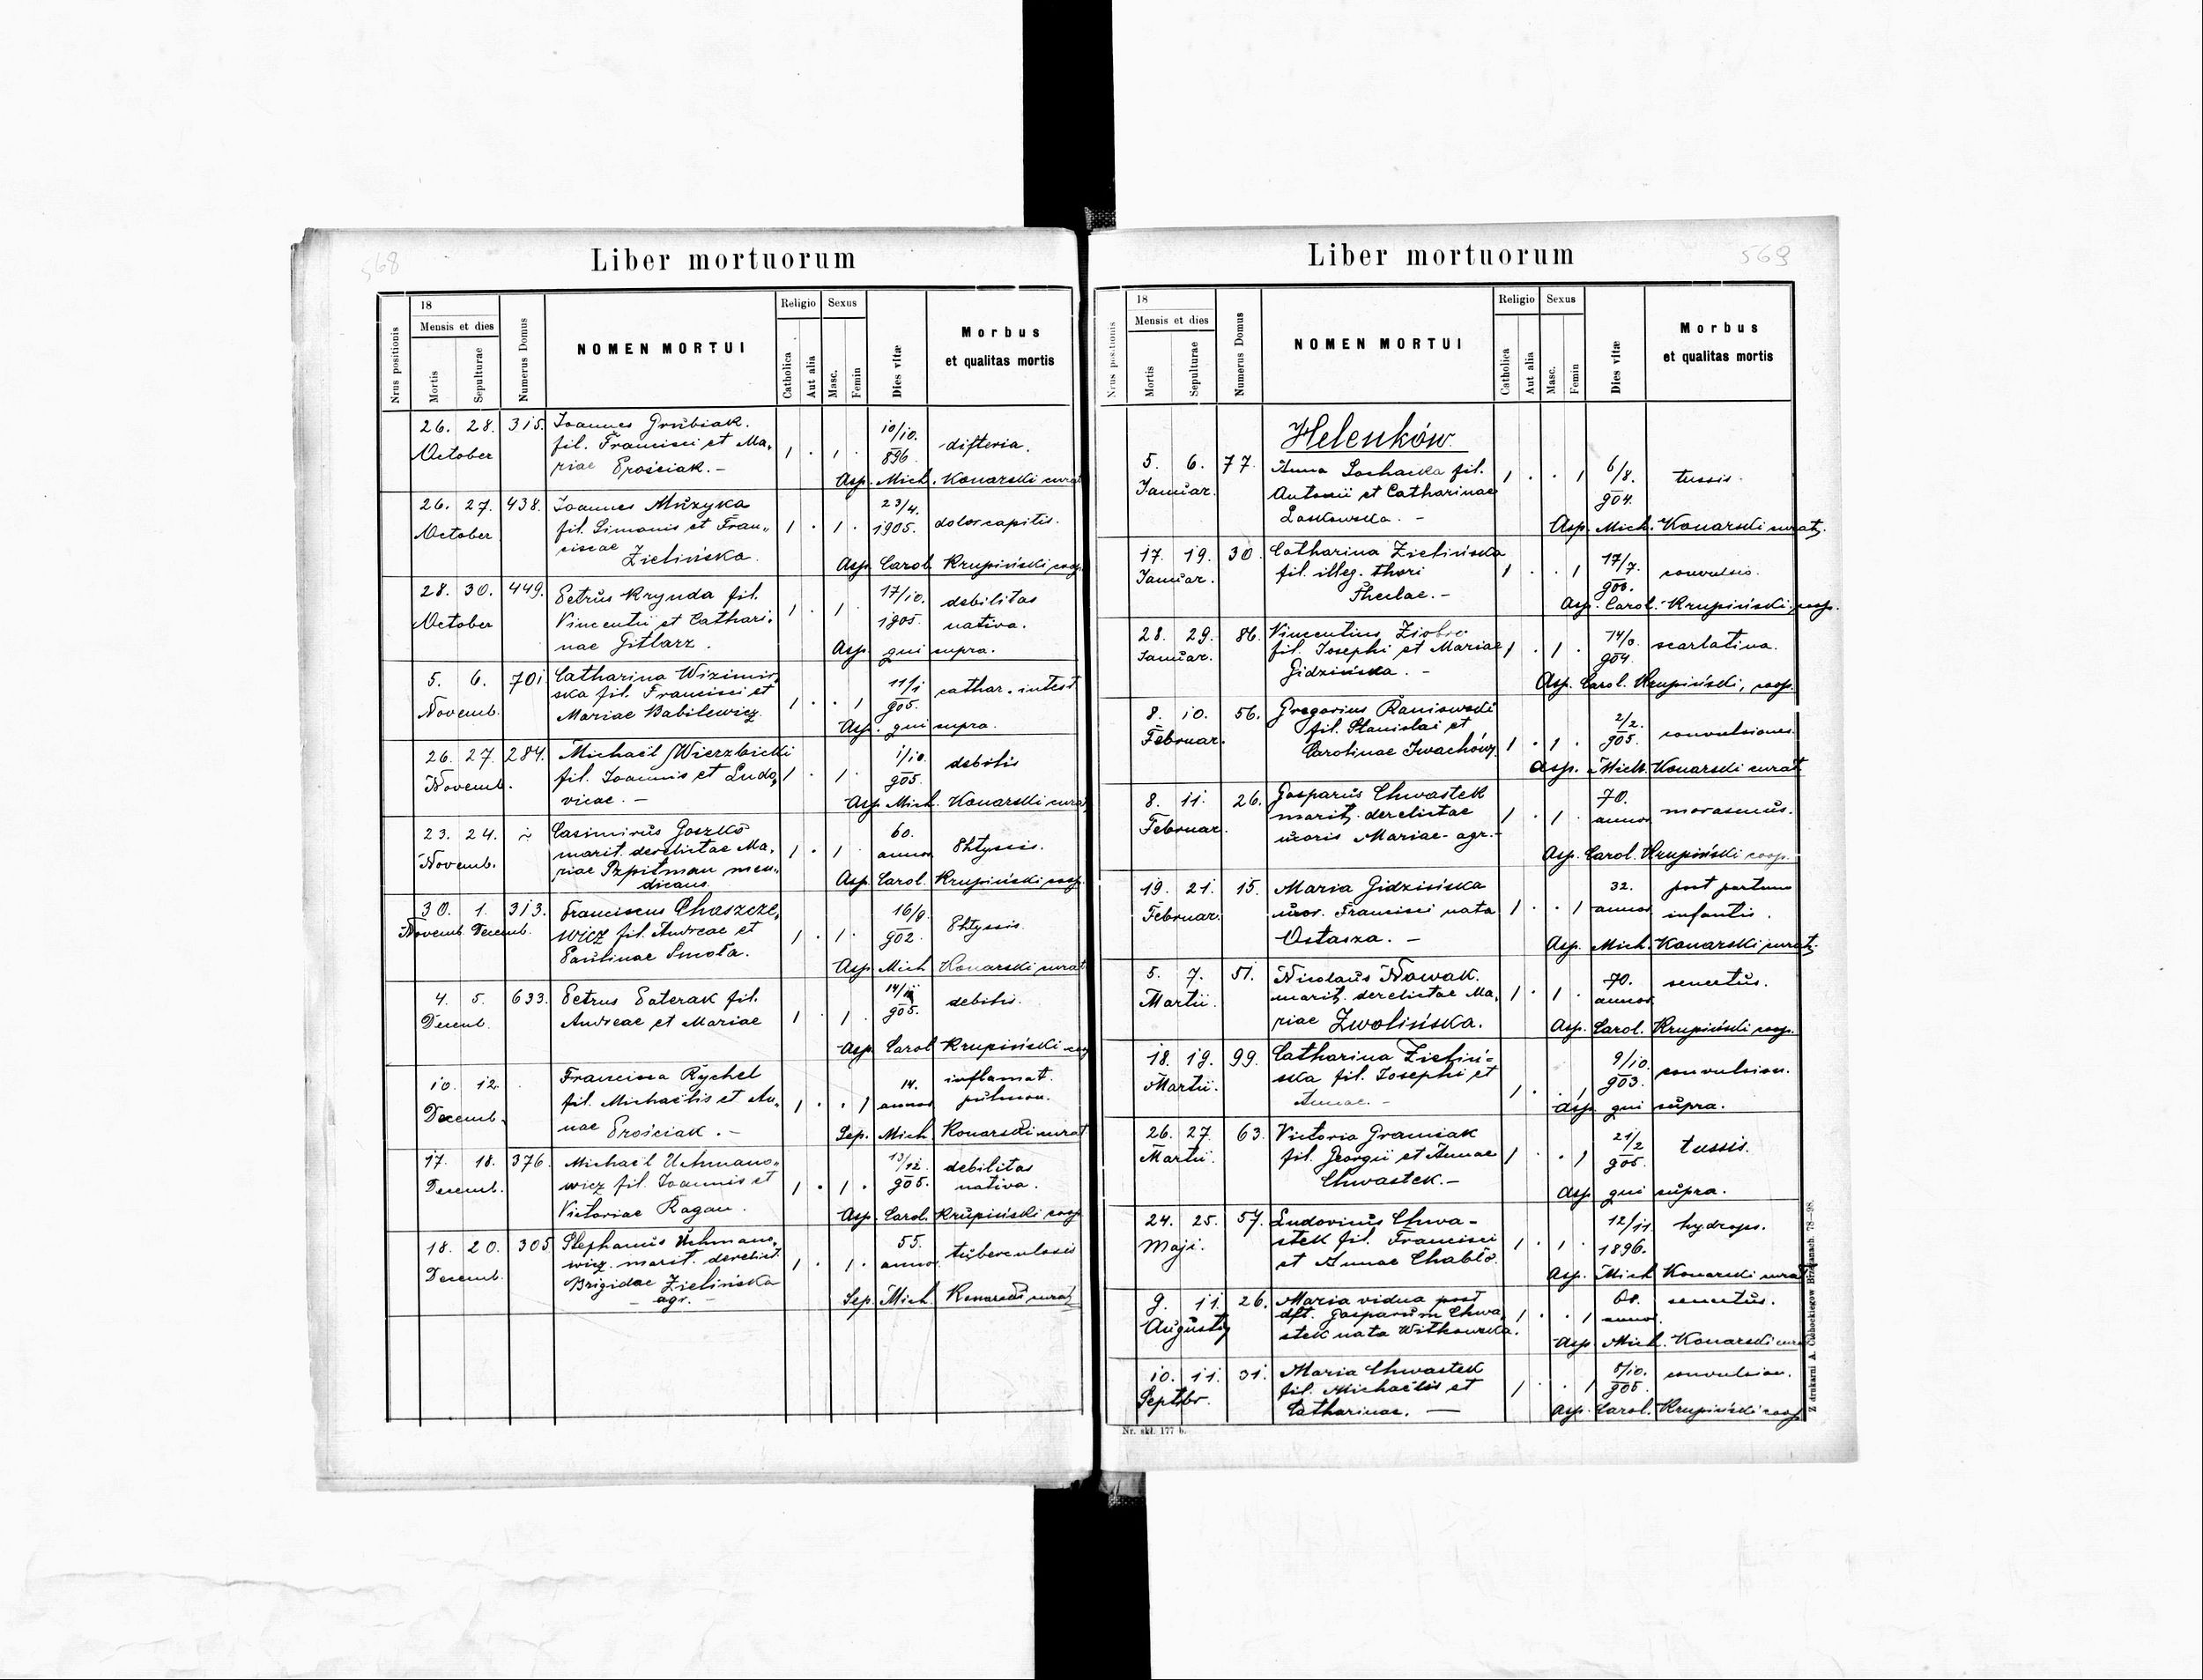 568
Liber mortuorum
Nrus positionis
18
Mensis et dies
Mortis
Sepulturae
Numerus Domus
NOMEN MORTUI
Religio
Catholica
Aut alia
Sexus
Masc.
Femin
Dies vitæ
Morbus
et qualitas mortis
26. 28. 315. Joannes Grubiak. 10/10.
October fil. Francisci et Ma- 1 . 1 . 896. difteria.
riae Prościak. - Asp. Mich. Konarski curat
26. 27. 438. Joannes Muzyka 23/4.
October fil. Simonis et Fran- 1 . 1 . 1905. dolor capitis.
ciscae
Zielińska. Asp. Carol Krupiński coop.
28. 30. 449. Petrus Krynda fil. 17/10. debilitas
October Vincentii et Cathari- 1 . 1 . 1905. nativa.
nae Gitlarz. Asp. qui supra.
5. 6. 701 Catharina Wizimir- 11/1
ska fil. Francisci et 905. cathar. intest
Novemb. Mariae Babilewicz. 1 . . 1 Asp. qui supra.
26. 27. 284. Michaël Wierzbicki 1/10.
Novemb. fil. Joannis et Ludo- 1 . 1 . 905. debilis
vicae. - Asp. Mich. Konarski curat
23. 24. Casimirus Goszko 60.
Novemb. marit. derelictae Ma- 1 . 1 annor. Phtyssis.
riae Przpitman men-
dicans. Asp. Carol. Krupiński coop.
30. 1. 313. Franciscus Chaszcze- 16/9.
Novemb. Decemb. wicz fil. Andreae et 1 . 1 . 902. Phtyssis.
Paulinae Smoła. Asp. Mich Konarski curat
4. 5. 633. Petrus Paterak fil. 14/11 debilis.
Decemb. Andreae et Mariae 1 . 1 . 905.
Asp. Carol Krupiński coop
10. 12. Francisca Rychel 14. inflamat.
Decemb. fil. Michaëlis et An- 1 . . 1 annor. pulmon.
nae Prościak. - Sep. Mich Konarski curat
17. 18. 376. Michaël Uchmano- 13/12. debilitas
Decemb. wicz fil. Joannis et 1 . 1 . 905. nativa.
Victoriae Ragan. Asp. Carol. Krupiński coop
18. 20. 305 Stephanus Uchmano- 55.
Decemb. wicz. marit. derelict. 1 . 1 . annor. tuberculosis
Brigidae Zielińska
- agr. - Sep. Mich. Konarski curat
Liber mortuorum
569
Nrus positionis
18
Mensis et dies
Mortis
Sepulturae
Numerus Domus
NOMEN MORTUI
Religio
Catholica
Aut alia
Sexus
Masc.
Femin
Dies vitæ
Morbus
et qualitas mortis
Helenków.
5. 6. 77. Anna Sochacka fil. 6/8.
Januar. Antonii et Catharinae 1 . . 1 904. tussis.
Laskowska. - Asp. Mich. Konarski curat.
17. 19. 30. Catharina Zielińska 17/7.
Januar. fil. illeg. thori 1 . . 1 900. convulsio.
Theclae. - Asp. Carol. Krupiński, coop.
28. 29. 86. Vincentius Ziobro
Januar. fil. Josephi et Mariae 1 . 1 . 904. scarlatina.
Gidzińska. - Asp. Carol. Krupiński, coop.
8. 10. 56. Gregorius Raniowski 2/2.
Februar. fil. Stanislai et 905. convulsiones.
Carolinae Iwachów. 1 . 1 . Asp. Mich. Konarski curat
8. 11. 26. Gasparus Chwastek 70.
Februar. marit. derelictae 1 . 1 . annor. morasmus.
uxoris Mariae - agr. - Asp. Carol. Krupiński coop.
19. 21. 15. Maria Gidzińska 32. post partum
Februar. uxor. Francisci nata 1 . . 1 annor. infantis.
Ostasza. - Asp. Mich. Konarski curat.
5. 7. 51. Nicolaus Nowak. 70. senectus.
Martii. marit. derelictae Ma- 1 . 1 . annor.
riae Zwolińska. Asp. Carol. Krupiński coop.
18. 19. 99. Catharina Zieliń- 9/10.
Martii. ska fil. Josephi et 903. convulsion.
Annae. - 1 . . 1 Asp. qui supra.
26. 27. 63. Victoria Graniak 21/2
Martii. fil. Georgii et Annae 1 . . 1 905. tussis.
Chwastek. - Asp. qui supra.
24. 25. 57. Ludovicus Chwa- 12/11. hydrops.
Maji. stek fil. Francisci 1 . 1 . 1896.
et Annae Chabło. Asp. Mich Konarski curat
9. 11. 26. Maria vidua post senectus.
Augusti dft. Gasparum Chwa- 1 . . 1 annor.
stek nata Witkowska. Asp. Mich. Konarski curat
10. 11. 31. Maria Chwastek convulsion.
Septbr. fil. Michaëlis et 1 . . 1 905.
Catharinae. - Asp. Carol. Krupiński coop
Nr. skł. 177 b.
Z drukarni A. Brzeżanach. 78—98.